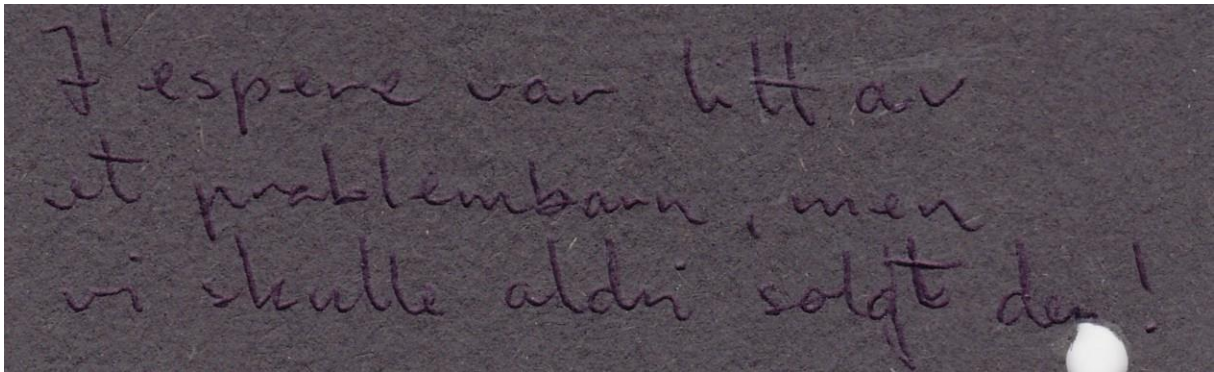 J'espere var litt av
et problembarn, men
vi skulle aldri solgt den!